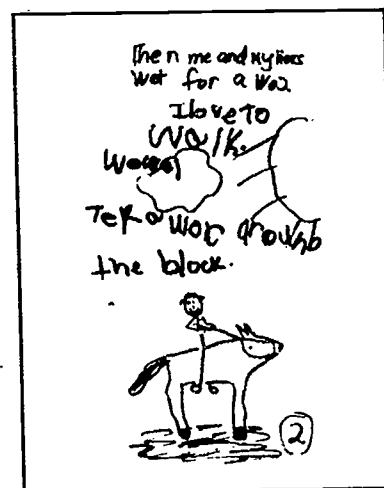 then me and my hors
wet for a wo2
I love to
walk.
Tek a wok arouhb
the block.
2